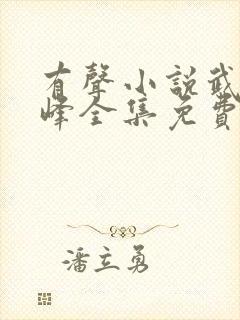 有聲小說武
峰全集免費
潘立勇